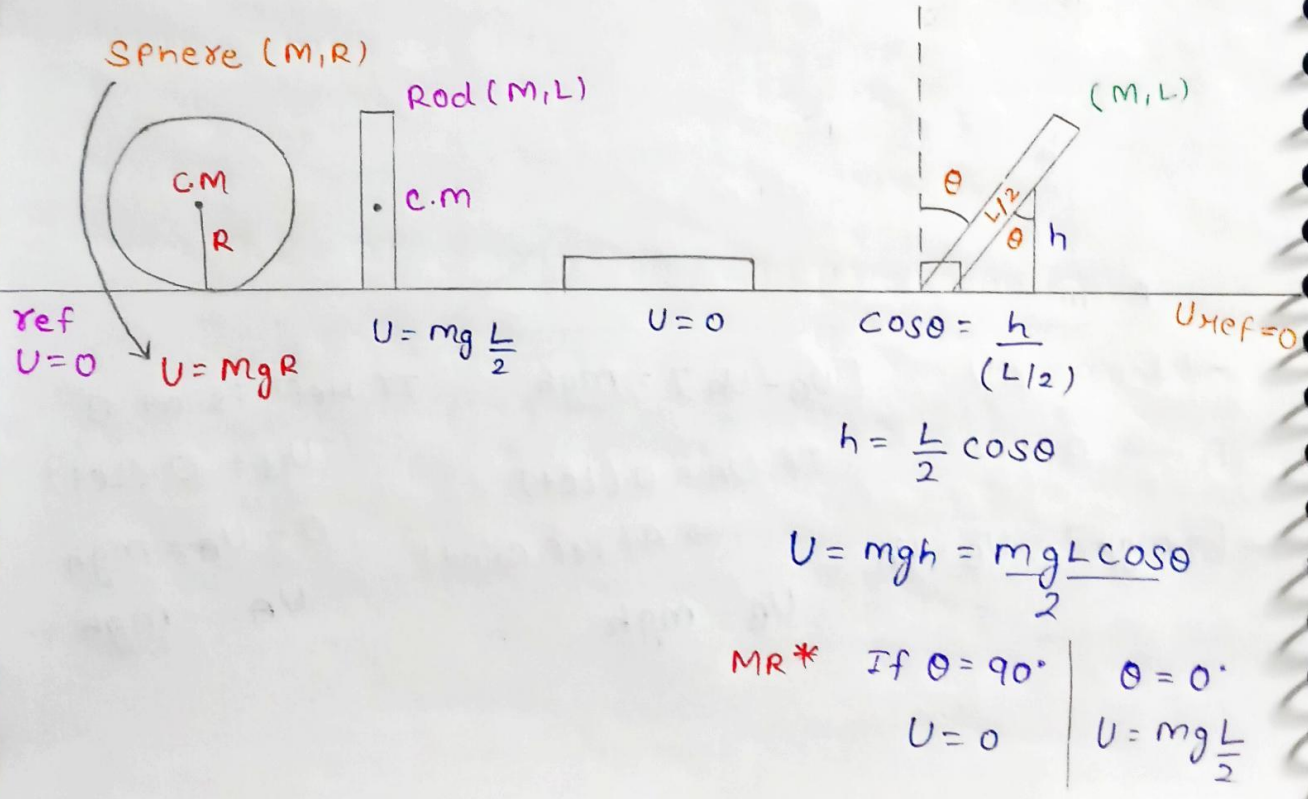 Sphere (M,R)
Rod (M,L)
(M,L)
C.M
R
C.m
θ
L/2
θ
h
ref
U=0
U = MgR
U = mg L/2
U = 0
cosθ = h/(L/2)
Uref=0
h = L/2 cosθ
U = mgh = mgLcosθ/2
MR* If θ = 90°
U = 0
θ = 0°
U = mg L/2